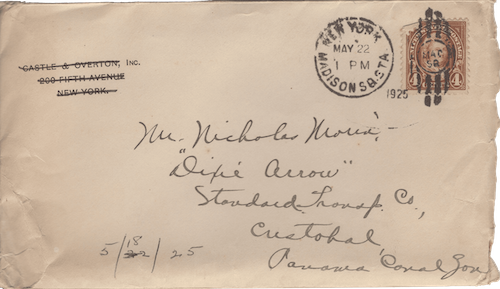 CASTLE & OVERTON, INC.
200 FIFTH AVENUE
NEW YORK,
NEW YORK
MAY 22
1 PM
MADISON SQ. STA.
1925
MAD
SQ
4 4
Mr. Nicholas Moria,-
"Dixie Arrow"
Standard Transp. Co.,
Cristobal,
Panama Canal Zon
5/18/25
22